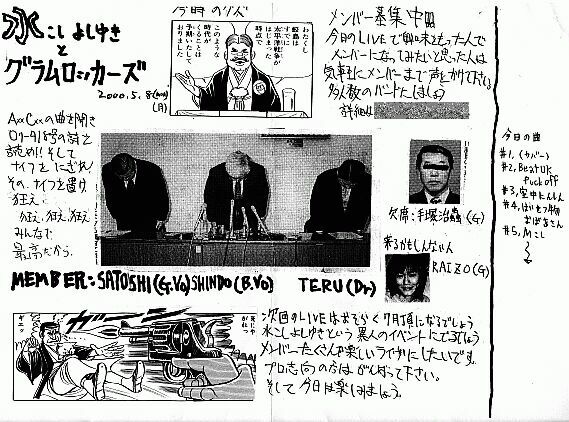 氷こしよしゆき
と
グラムロッカーズ
2000.5.8
(月)
今時のクズ
わたくし
鮫島は
すでに
太平洋戦争が
はじまった
時点で
このような
時代が
くることは
予期いたして
おりました
メンバー募集中
今日のLIVEで興味をもった人で
メンバーになってみたいと思った人は
気軽にメンバーまで声をかけて下さい
多人数のバンドにしましょう
詳細は
の曲を聞き
の詩を
読め!そして
ナイフをにぎれ
その、ナイフを置け
狂え、
狂え、狂え、狂え
みんなで
最高だから。
欠席:手塚治蟲(G)
来るかもしんない人
RAIZO(G)
MEMBER:SATOSHI(G.Vo)SHINDO(B.Vo) TERU(Dr)
今日の曲
#1.(カバー)
#2.Beat UK
fuck off
#3.空中
#4.
おばあさん
#5.
次回のLIVEはおそらく7月頃になるでしょう
氷こしよしゆきという異人のイベントにでるでしょう
メンバーたくさんの楽しいライブにしたいです。
プロ志向の方はがんばって下さい。
そして今日は楽しみましょう。